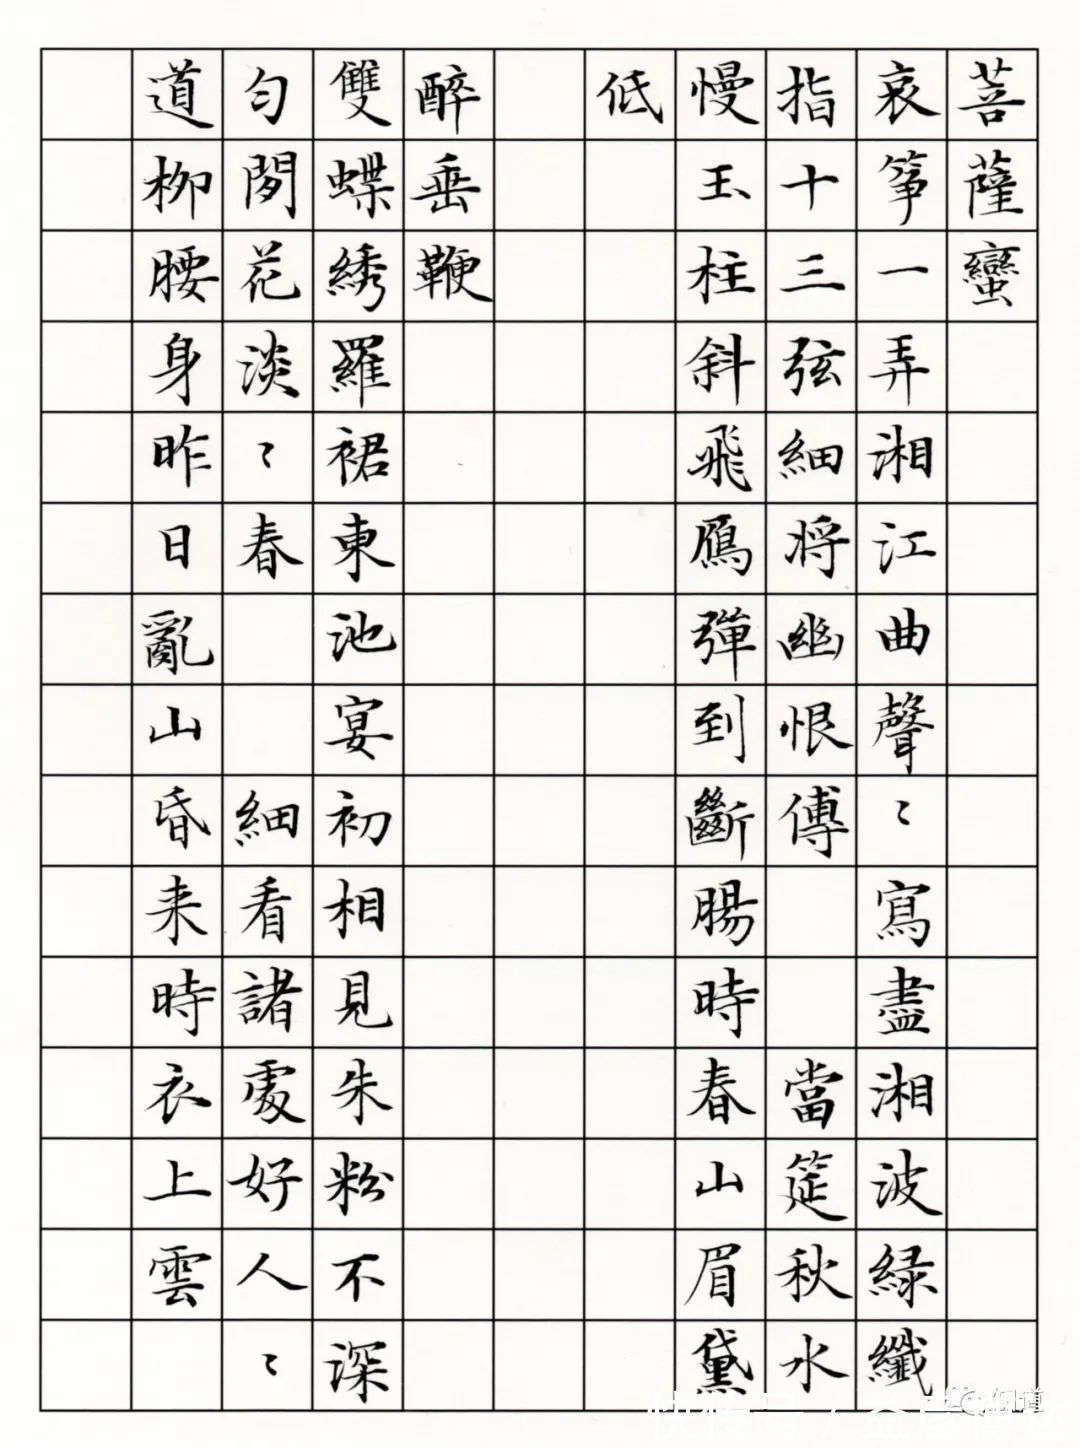 菩薩蠻
哀筝一弄湘江曲聲〻寫盡湘波緑纖
指十三弦細将幽恨傳 當筵秋水
慢玉柱斜飛鴈彈到斷腸時春山眉黛
低
醉垂鞭
雙蝶綉羅裙東池宴初相見朱粉不深
匀閒花淡〻春 細看諸處好人〻
道柳腰身昨日亂山昏来時衣上雲
快传号 /